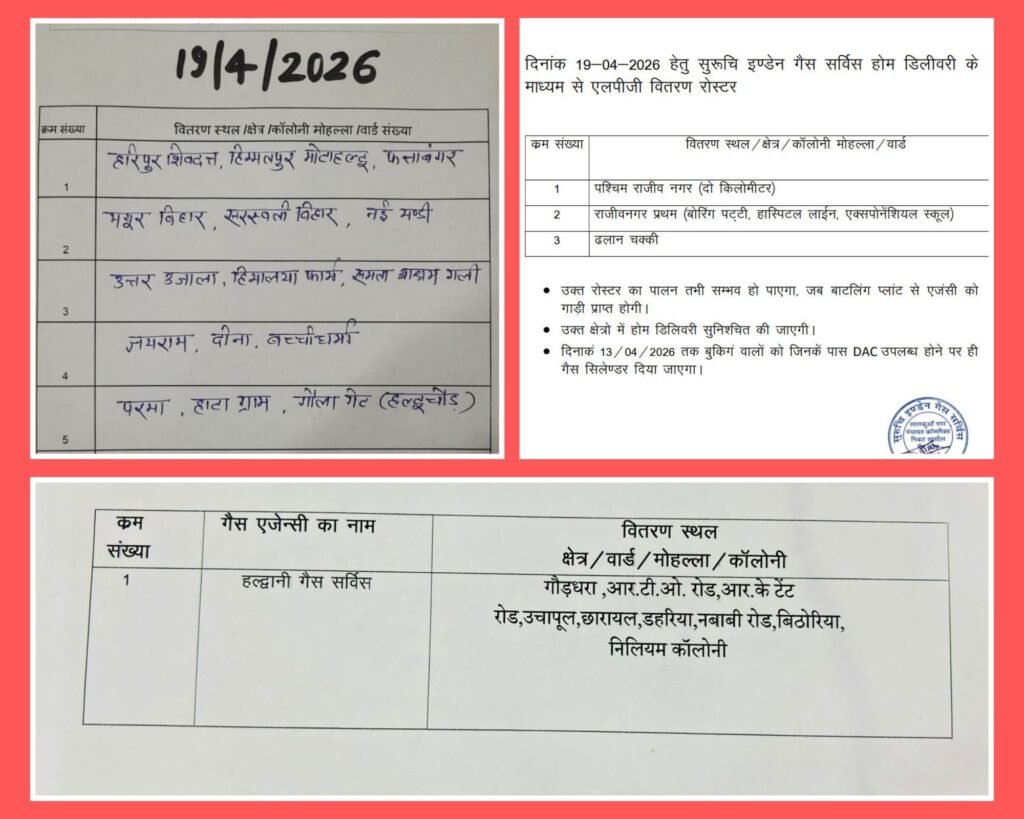 19/4/2026
क्रम संख्या
वितरण स्थल /क्षेत्र /कॉलोनी मोहल्ला /वार्ड संख्या
1
हरिपुर शिवदत्त, हिम्मतपुर मोटाहल्दू, फत्ताबंगर
2
मयूर विहार, सरस्वती विहार, नई मण्डी
3
उत्तर उजाला, हिमालया फार्म, गली
4
जयराम, दीना, बच्चीधर्मा
5
परमा, हाटा ग्राम, गौला गेट (हल्दूचौड़)
दिनांक 19-04-2026 हेतु सुरूचि इण्डेन गैस सर्विस होम डिलीवरी के
माध्यम से एलपीजी वितरण रोस्टर
क्रम संख्या
वितरण स्थल/क्षेत्र/कॉलोनी मोहल्ला/वार्ड
1
पश्चिम राजीव नगर (दो किलोमीटर)
2
राजीवनगर प्रथम (बोरिंग पट्टी, हास्पिटल लाईन, एक्सपोनेंशियल स्कूल)
3
ढलान चक्की
• उक्त रोस्टर का पालन तभी सम्भव हो पाएगा, जब बाटलिंग प्लांट से एजंसी को
गाड़ी प्राप्त होगी।
• उक्त क्षेत्रो में होम डिलिवरी सुनिश्चित की जाएगी।
• दिनाकं 13/04/2026 तक बुकिग वालों को जिनकें पास DAC उपलब्ध होने पर ही
गैस सिलेण्डर दिया जाएगा।
सुरुचि इण्डेन गैस सर्विस
लालकुआँ नगर
पंचायत कॉम्प्लैक्स
निकट तहसील
क्रम
संख्या
गैस एजेन्सी का नाम
वितरण स्थल
क्षेत्र/वार्ड/मोहल्ला/कॉलोनी
1
हल्द्वानी गैस सर्विस
गौड़धरा ,आर.टी.ओ. रोड,आर.के टेंट
रोड,उचापूल,छारायल,डहरिया,नबाबी रोड,बिठोरिया,
निलियम कॉलोनी